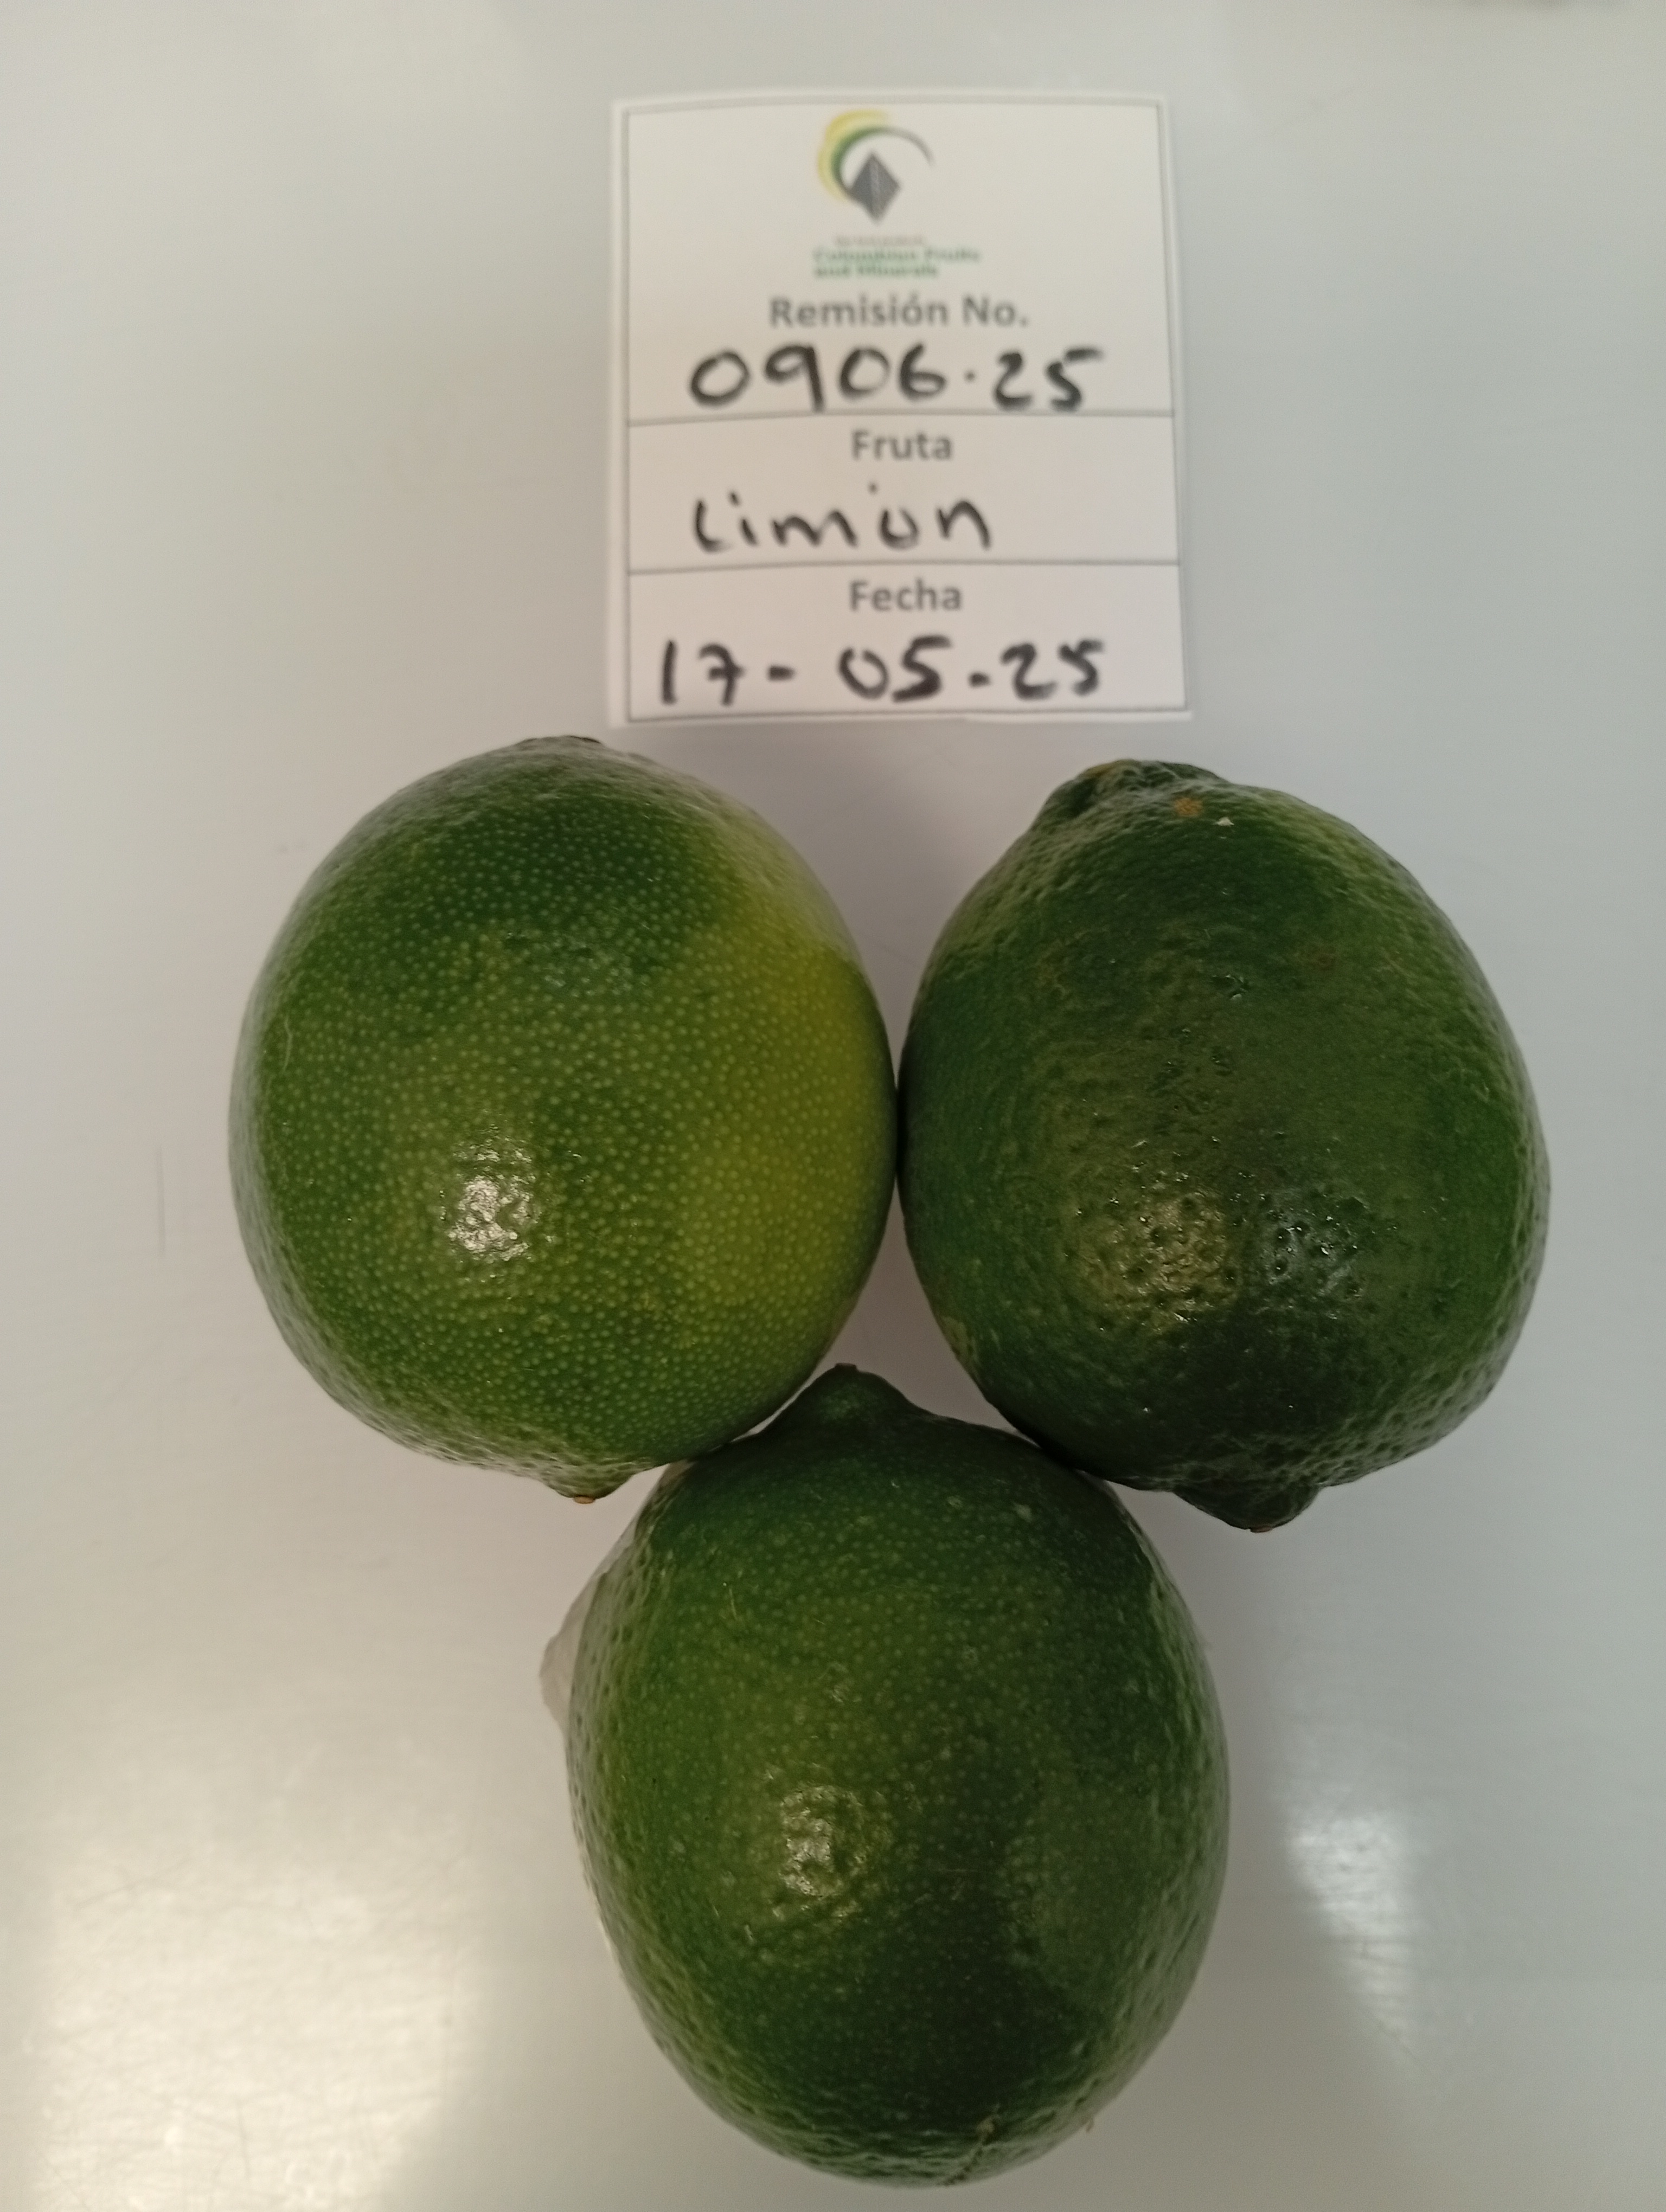 Colombian Fruits
and Minerals
Remisión No.
0906.25
Fruta
Limion
Fecha
17-05-25